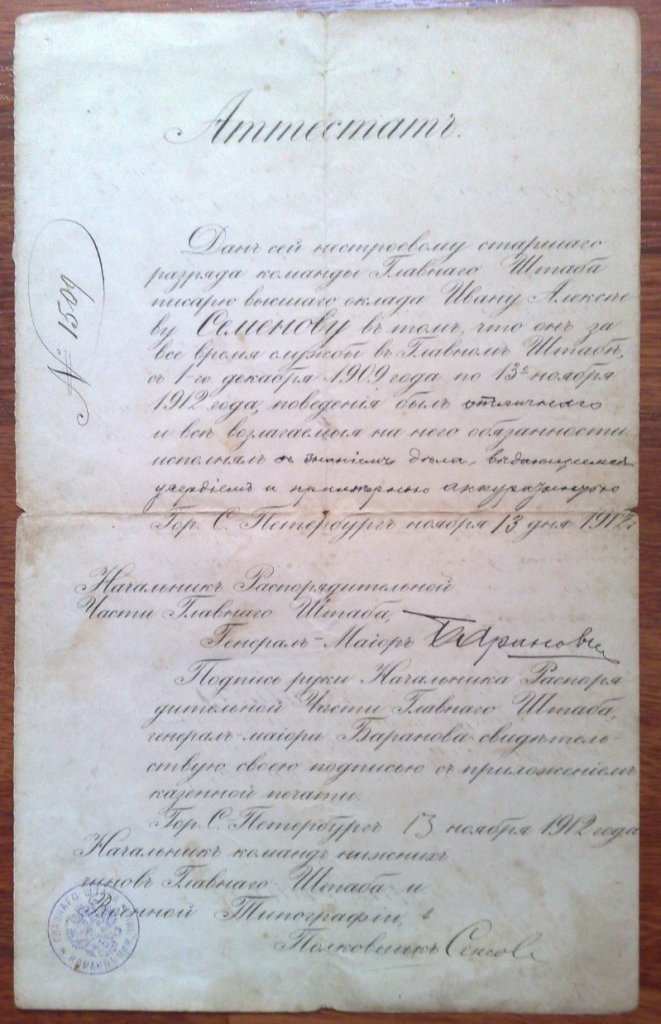 Аттестатъ.
№ 1509
Данъ сей нестроевому старшаго
разряда команды Главнаго Штаба
писарю высшаго оклада Ивану Алексѣе-
ву Семенову въ томъ, что онъ за
все время службы въ Главномъ Штабѣ,
съ 1-го декабря 1909 года по 13е ноября
1912 года, поведенія былъ отличнаго
и всѣ возлагаемыя на него обязанности
исполнялъ съ знаніемъ дѣла, выдающимся
усердіемъ и примѣрною аккуратностью
Гор. С. Петербургъ ноября 13 дня 1912 г.
Начальникъ Распорядительной
Части Главнаго Штаба,
Генералъ-Маіоръ Барановъ
Подпись руки Начальника Распоря
дительной Части Главнаго Штаба,
генералъ-маіора Баранова свидѣтель-
ствую своею подписью съ приложеніемъ
казенной печати.
Гор. С. Петербургъ 13 ноября 1912 года
Начальникъ командъ нижнихъ
чиновъ Главнаго Штаба и
Военной Типографіи,
Полковникъ